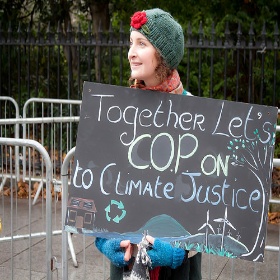 Together Let's
C.O.P. ON
to Climate Justice